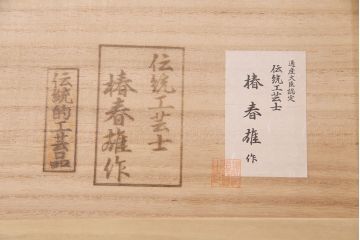 通産大臣認定
伝統工芸士
椿春雄作
伝統工芸士
椿春雄作
伝統的工芸品